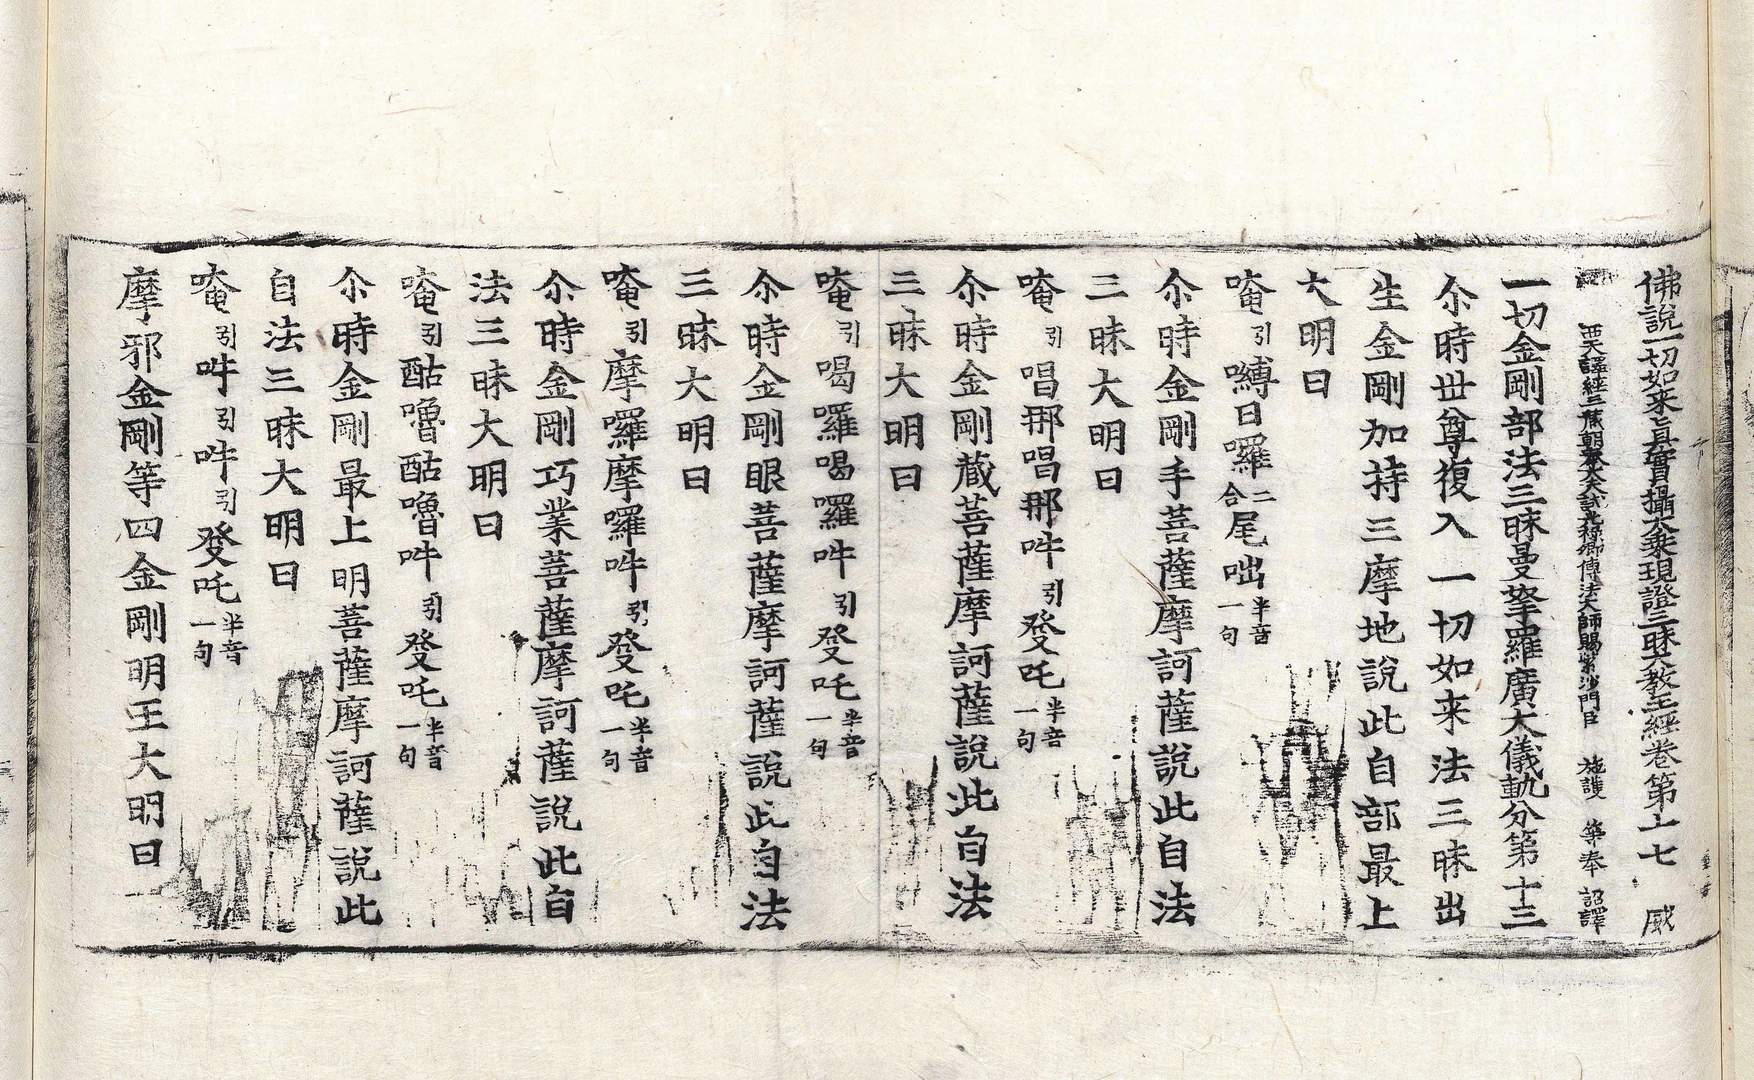 佛說一切如来真實攝大乘現證三昧大教王經卷第十七　威
西天譯經三藏朝奉大夫試光祿卿傳法大師賜紫沙門臣　施護　等奉　詔譯
一切金剛部法三昧曼拏羅廣大儀軌分第十三
尒時世尊復入一切如来法三昧出
生金剛加持三摩地說此自部最上
大明曰
唵引嚩日囉二合尾咄半音一句
尒時金剛手菩薩摩訶薩說此自法
三昧大明曰
唵引唱那唱那吽引癹吒半音一句
尒時金剛藏菩薩摩訶薩說此自法
三昧大明曰
唵引喝囉喝囉吽引癹吒半音一句
尒時金剛眼菩薩摩訶薩說此自法
三昧大明曰
唵引摩囉摩囉吽引癹吒半音一句
尒時金剛巧業菩薩摩訶薩說此自
法三昧大明曰
唵引酤嚕酤嚕吽引癹吒半音一句
尒時金剛最上明菩薩摩訶薩說此
自法三昧大明曰
唵引吽引吽引癹吒半音一句
摩邪金剛等四金剛明王大明曰